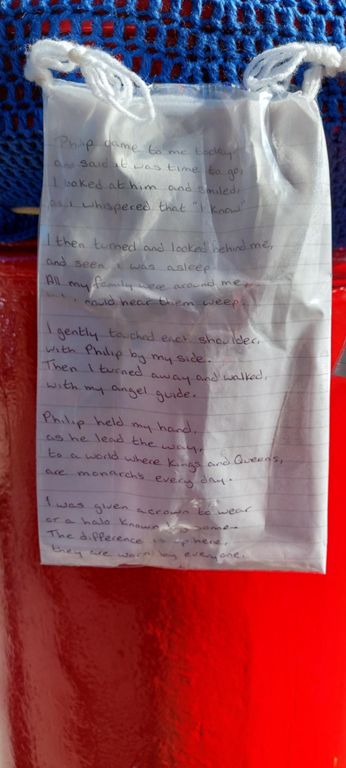 Philip came to me today,
and said it was time to go,
I looked at him and smiled,
as I whispered that "I know"
I then turned and looked behind me,
and seen I was asleep
All my family were around me,
could hear them weep.
I gently touched each shoulder,
with Philip by my side.
Then I turned away and walked,
with my angel guide.
Philip held my hand,
as he lead the way,
to a world where Kings and Queens,
are monarchs every day.
I was given a crown to wear
or a halo known some
The difference is up here,
they are worn by everyone.